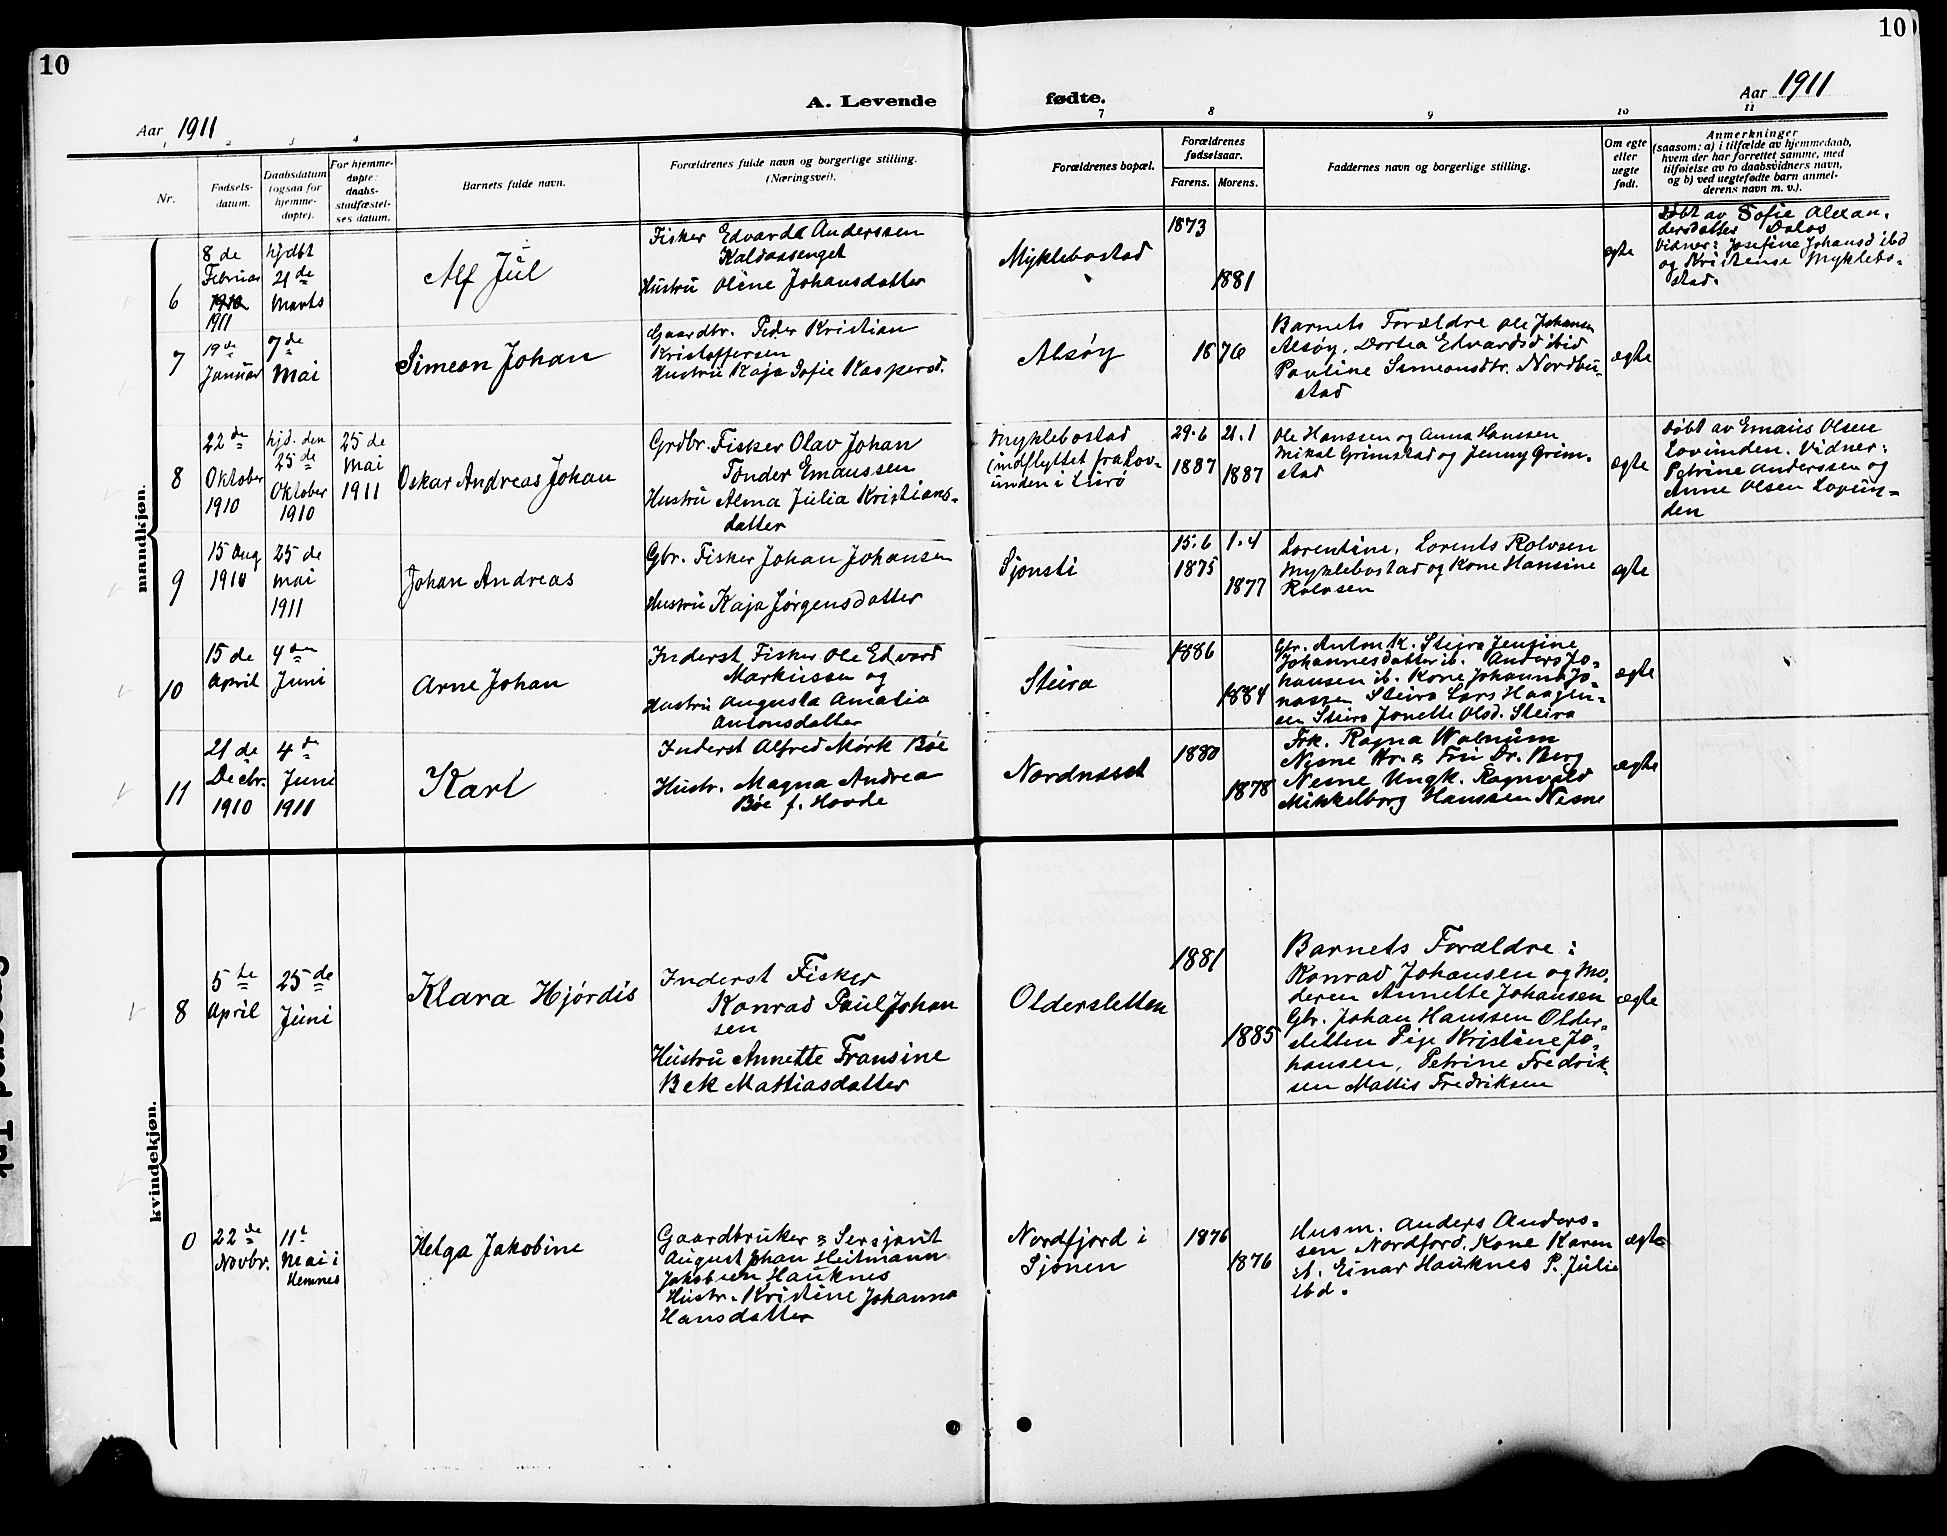 10
10
A. Levende
fødte.
Aar 1911
Aar 1911
1 2 3 4
7 8 9 10 11
Nr.
Fødsels-
datum.
Daabsdatum
(ogsaa for
hjemme-
døpte).
For hjemme-
døpte:
daabs-
stadfæstel-
ses datum.
Barnets fulde navn.
Forældrenes fulde navn og borgerlige stilling.
(Næringsvei).
Forældrenes bopæl.
Forældrenes
fødselsaar.
Farens. Morens.
Faddernes navn og borgerlige stilling.
Om egte
eller
uegte
født.
Anmerkninger
(saasom: a) i tilfælde av hjemmedaab,
hvem der har forrettet samme, med
tilføielse av to daabsvidners navn,
og b) ved uegtefødte barn anmel-
derens navn m. v.).
mandkjøn.
6
8 de
Februar
1910
1911
hjdbt
21 de
Marts
Alf Jul
Fisker Edvard Anderssen
Kaldaasenget
Hustru Oline Johansdatter
Myklebostad
1873
1881
egte
Døbt av Sofie Alexan-
dersdatter Dalos
Vidner: Josefine Johansd ibd
og Kristense Myklebo-
stad.
7
19 de
Januar
7 de
Mai
Simeon Johan
Gaardbr. Peder Kristian
Kristoffersen
Hustru Kaja Sofie Kaspersd.
Alsøy
1876
Barnets Forældre Ole Johansen
Alsøy, Dortea Edvardsd ibid
Pauline Simeonsdtr. Nordbu-
stad
egte
8
22 de
Oktober
1910
hjd. den
25 de
Oktober
1910
25 de
Mai
1911
Oskar Andreas Johan
Grdbr. Fisker Olav Johan
Tønder Emaussen
Hustru Alma Julia Kristians-
datter
Myklebostad
(indflyttet fra Lov-
unden i Lurø
29-6
1887
21-1
1887
Ole Hanssen og Anna Hanssen
Mikal Grimstad og Jenny Grim-
stad
egte
Døbt av Emaus Olsen
Lovunden. Vidner:
Petrine Anderssen og
Anne Olsen Lovun-
den
9
15 Aug
1910
25 de
Mai
1911
Johan Andreas
Gbr. Fisker Johan Johansen
Hustru Kaja Jørgensdatter
Sjonsti
15-6
1875
1-4
1877
Lorentine, Lorents Rolvsen
Myklebostad og Kone Hansine
Rolvsen
egte
10
15 de
April
4 de
Juni
Arne Johan
Inderst Fisker Ole Edvard
Markussen og
Hustru Augusta Amalia
Antonsdatter
Steira
1886
1884
Gbr. Anton K. Steira Jensine
Johannesdatter ib. Anders Jo-
hansen ib. Kone Johanna Jo-
nassen Steira Lars Haagen-
sen Steira Jonette Olsd. Steira
egte
11
21 de
Decbr.
1910
4 de
Juni
1911
Karl
Inderst Alfred Mørk Bøe
Hustr. Magna Andrea
Bøe f. Hovde
Nordnæset
1880
1878
Frk. Ragna Walnum
Nesne Hr. & Fru Dr. Berg
Nesne Ungk. Ragnvald
Mikkelborg Hanssen Nesne
egte
kvindekjøn.
8
5 te
April
25 de
Juni
Klara Hjørdis
Inderst Fisker
Konrad Paul Johan
sen
Hustru Annette Fransine
Bek Mattiasdatter
Oldersletten
1881
1885
Barnets Forældre:
Konrad Johansen og Mo-
deren Annette Johansen
Gbr. Johan Hanssen Older-
sletten Pige Kristine Jo-
hansen, Petrine Fredrik-
sen Mattis Fredriksen
egte
0
22 de
Novbr.
11 t
Mai i
Hemnes
Helga Jakobine
Gaardbruker & Sersjant
August Johan Heitmann
Jakobsen Hauknes
Hustr. Kristine Johanna
Hansdatter
Nordfjord i
Sjonen
1876
1876
Husm. Anders Anders-
sen Nordfjord. Kone Karen
A. Einar Hauknes P. Julie
ibd.
egte